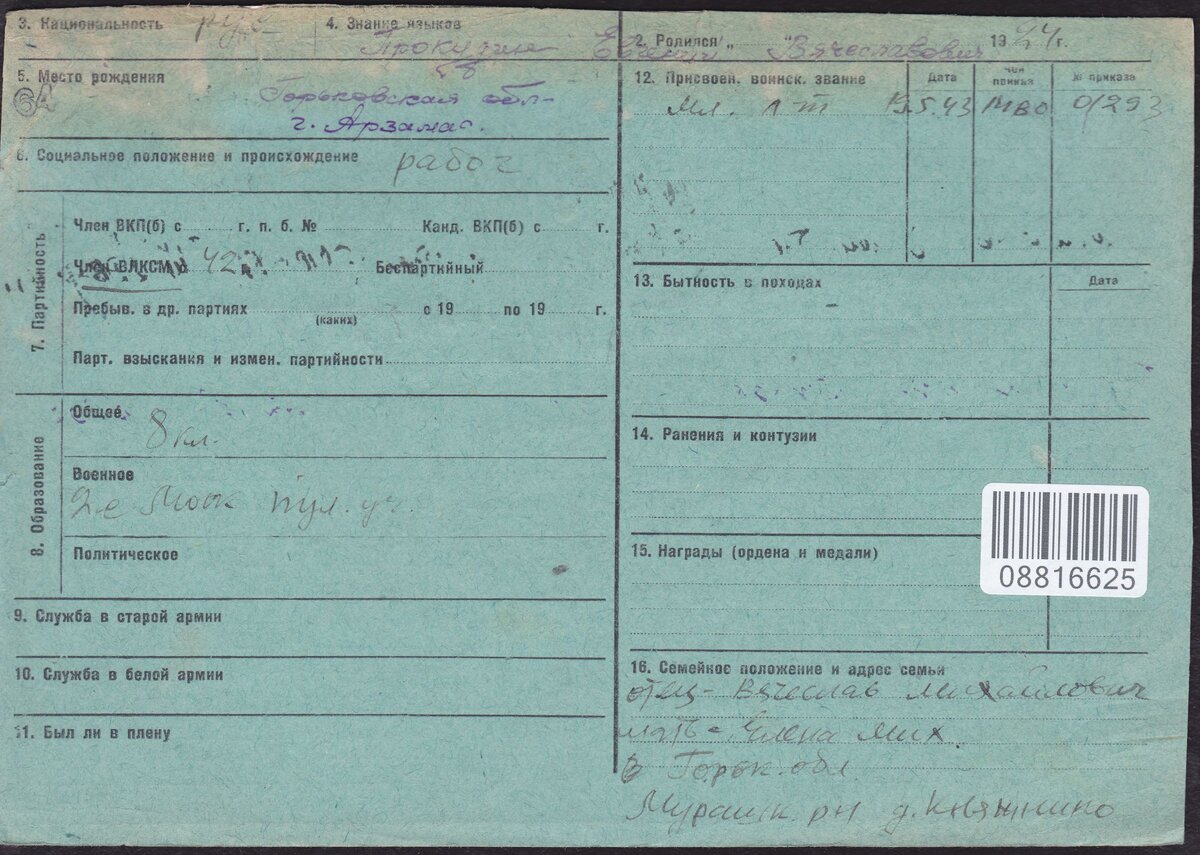 3. Национальность рус 4. Знание языков
2. Родился „ “ 1924 г.
Евгений Вячеславович
5. Место рождения
Горьковская обл-
г. Арзамас.
6. Социальное положение и происхождение рабоч
7. Партийность
Член ВКП(б) с г. п. б. № Канд. ВКП(б) с г.
Член ВЛКСМ с 42 Беспартийный
Пребыв. в др. партиях (каких) с 19 по 19 г.
Парт. взыскания и измен. партийности
8. Образование
Общее 8 кл.
Военное
2-е Моск пул. уч.
Политическое
9. Служба в старой армии
10. Служба в белой армии
11. Был ли в плену
12. Присвоен. воинск. звание Дата Чей приказ № приказа
Мл. л-т 15.5.43 МВО 0/293
13. Бытность в походах Дата
14. Ранения и контузии
15. Награды (ордена и медали)
08816625
16. Семейное положение и адрес семьи
отец - Вячеслав Михайлович
мать - Елена Мих.
в Горьк. обл
рн д. Княжнино